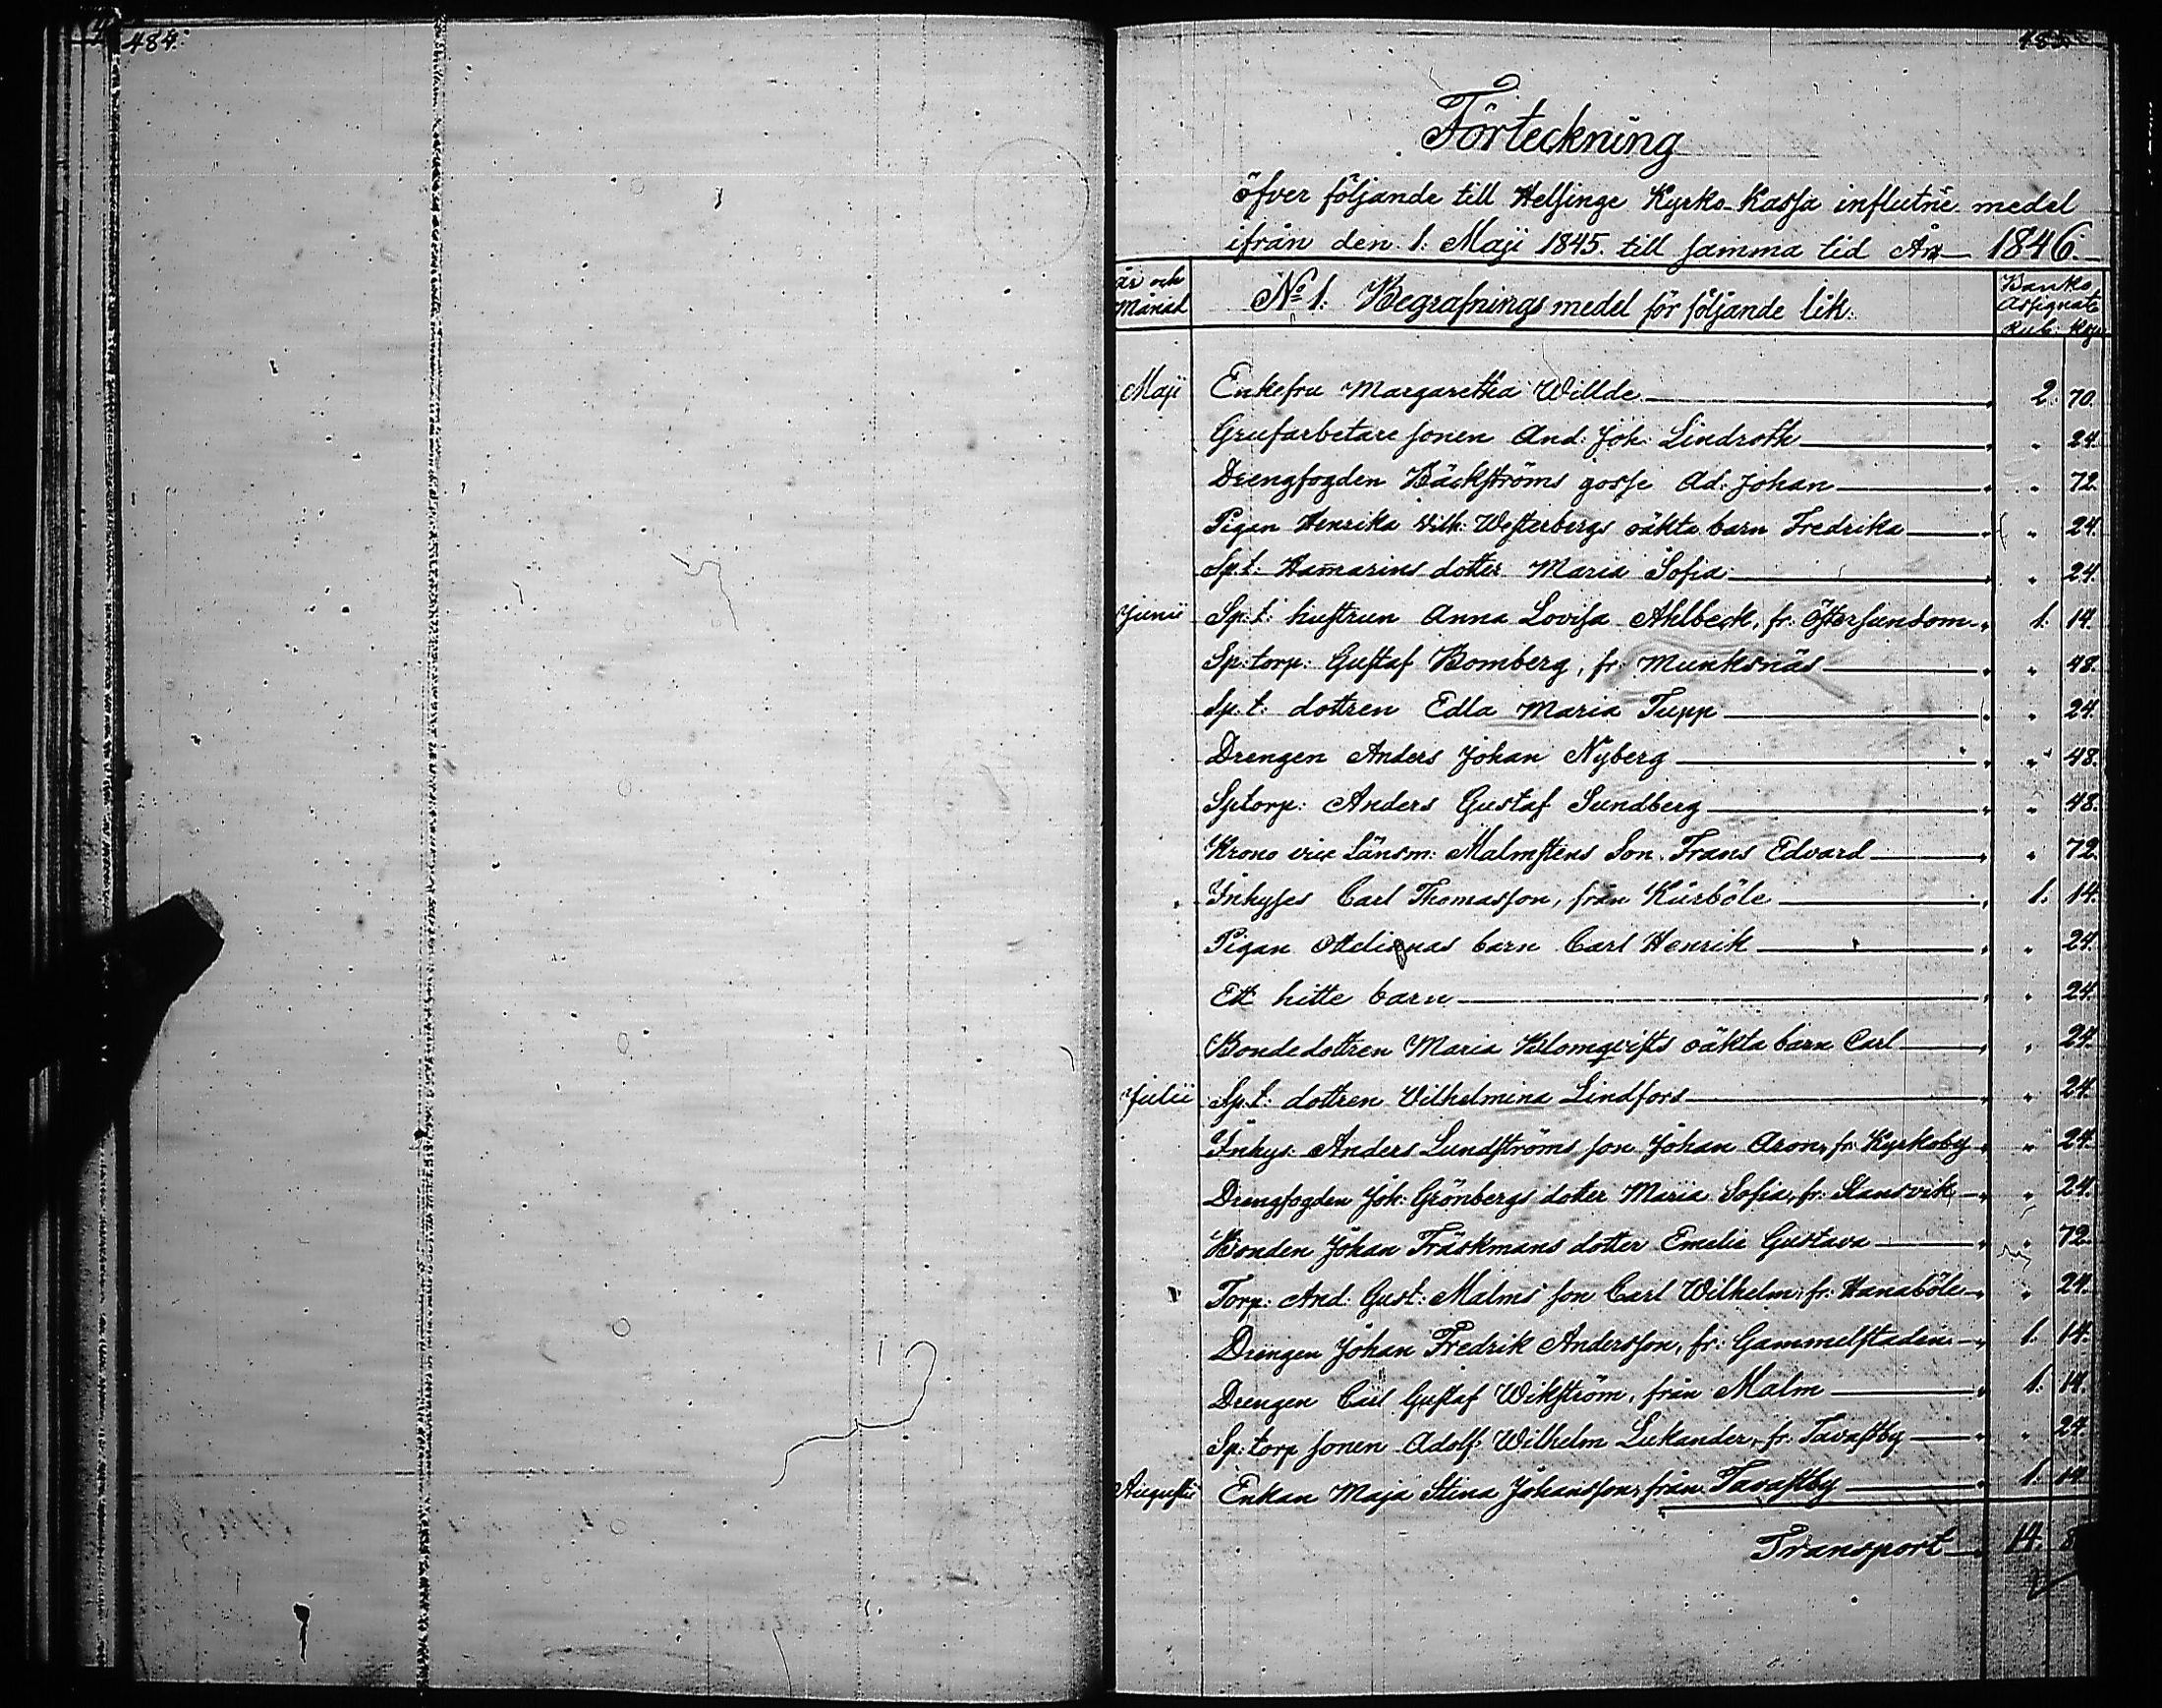 484.
485.
Förteckning
öfver följande till Helsinge Kyrko-Kassa influtne medel
ifrån den 1. Maji 1845. till samma tid År 1846.
år och Månad
No 1. Begrafnings medel för följande lik:
Banko Assignats
Rub: Kop
Maji Enkefru Margaretha Willde 2. 70.
Grufarbetare sonen And: Joh: Lindroth " 24.
Drengfogden Bäckströms gosse Ad: Johan " 72.
Pigan Henrika Vilh: Westerbergs oäkta barn Fredrika " 24.
Sp.t: Hamarins dotter Maria Sofia " 24.
Junii Sp:t: hustrun Anna Lovisa Ahlbeck, fr: Östersundom 1. 14.
Sp:torp: Gustaf Bomberg, fr: Munksnäs " 48.
Sp.t: dottren Edla Maria Tupp " 24.
Drengen Anders Johan Nyberg " 48.
Sptorp: Anders Gustaf Sundberg " 48.
Krono vice Länsm: Malmstens Son Frans Edvard " 72.
Inhyses Carl Thomasson, från Kürböle 1. 14.
Pigan barn Carl Henrik " 24.
Ett hitte barn " 24.
Bondedottren Maria Blomqvists oäkta barn Carl " 24.
Julii Sp.t: dottren Vilhelmina Lindfors " 24.
Inhys: Anders Lundströms son Johan Aron, fr: Kyrkoby " 24.
Drengfogden Joh: Grönbergs dotter Maria Sofia, fr: Stansvik " 24.
Bonden Johan Träskmans dotter Emelie Gustava " 72.
Torp: And: Gust: Malms son Carl Wilhelm, fr: Hanaböle " 24.
Drengen Johan Fredrik Andersson, fr: Gammelstaden 1. 14.
Drengen Carl Gustaf Wikström, från Malm 1. 14.
Sp:torp sonen Adolf: Wilhelm Lukander, fr: Tavastby " 24.
Augusti Enkan Maja Stina Johansson, från Tavastby 1. 14
Transport 14. 8